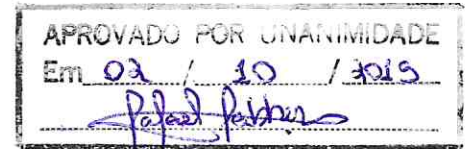 APROVADO POR UNANIMIDADE
Em 02 / 10 / 2019
Rafael